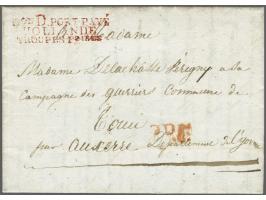 Nº D. PORT PAYÉ
HOLLANDE
TROUPES FRISES
Madame
Madame Delachasse Verigny a sa
Campagne des guerriers Commune de
Toui
P.P.
par auxerre Département de l'yonne